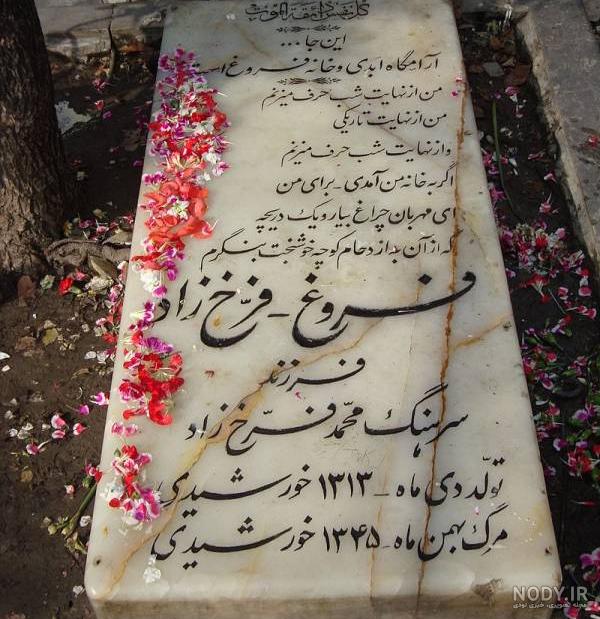 كل نفس ذائقة الموت
این جا ...
آرامگاه ابدی و خانه فروغ است
من از نهایت شب حرف میزنم
من از نهایت تاریکی
و از نهایت شب حرف میزنم
اگر به خانه من آمدی - برای من
ای مهربان چراغ بیار و یک دریچه
که از آن به ازدحام کوچه خوشبخت بنگرم
فروغ - فرّخ زاد
فرزند
سرهنگ محمّد فرّخ زاد
تولّد دی ماه - ۱۳۱۳ خورشیدی
مرگ بهمن ماه - ۱۳۴۵ خورشیدی
NODY.IR
مجله تصویری، خبری نودی